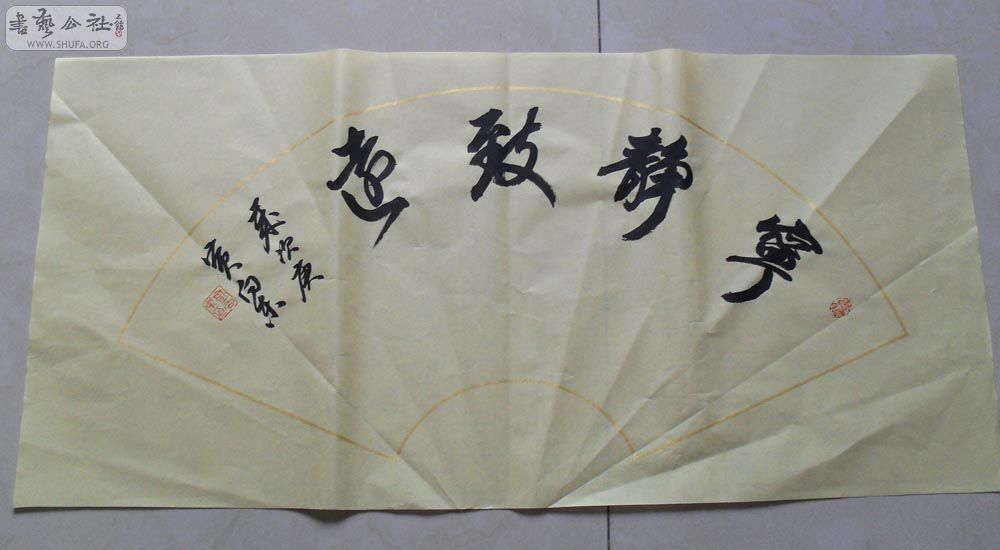 書藝公社
WWW.SHUFA.ORG
寧靜致遠
歲次庚
寅